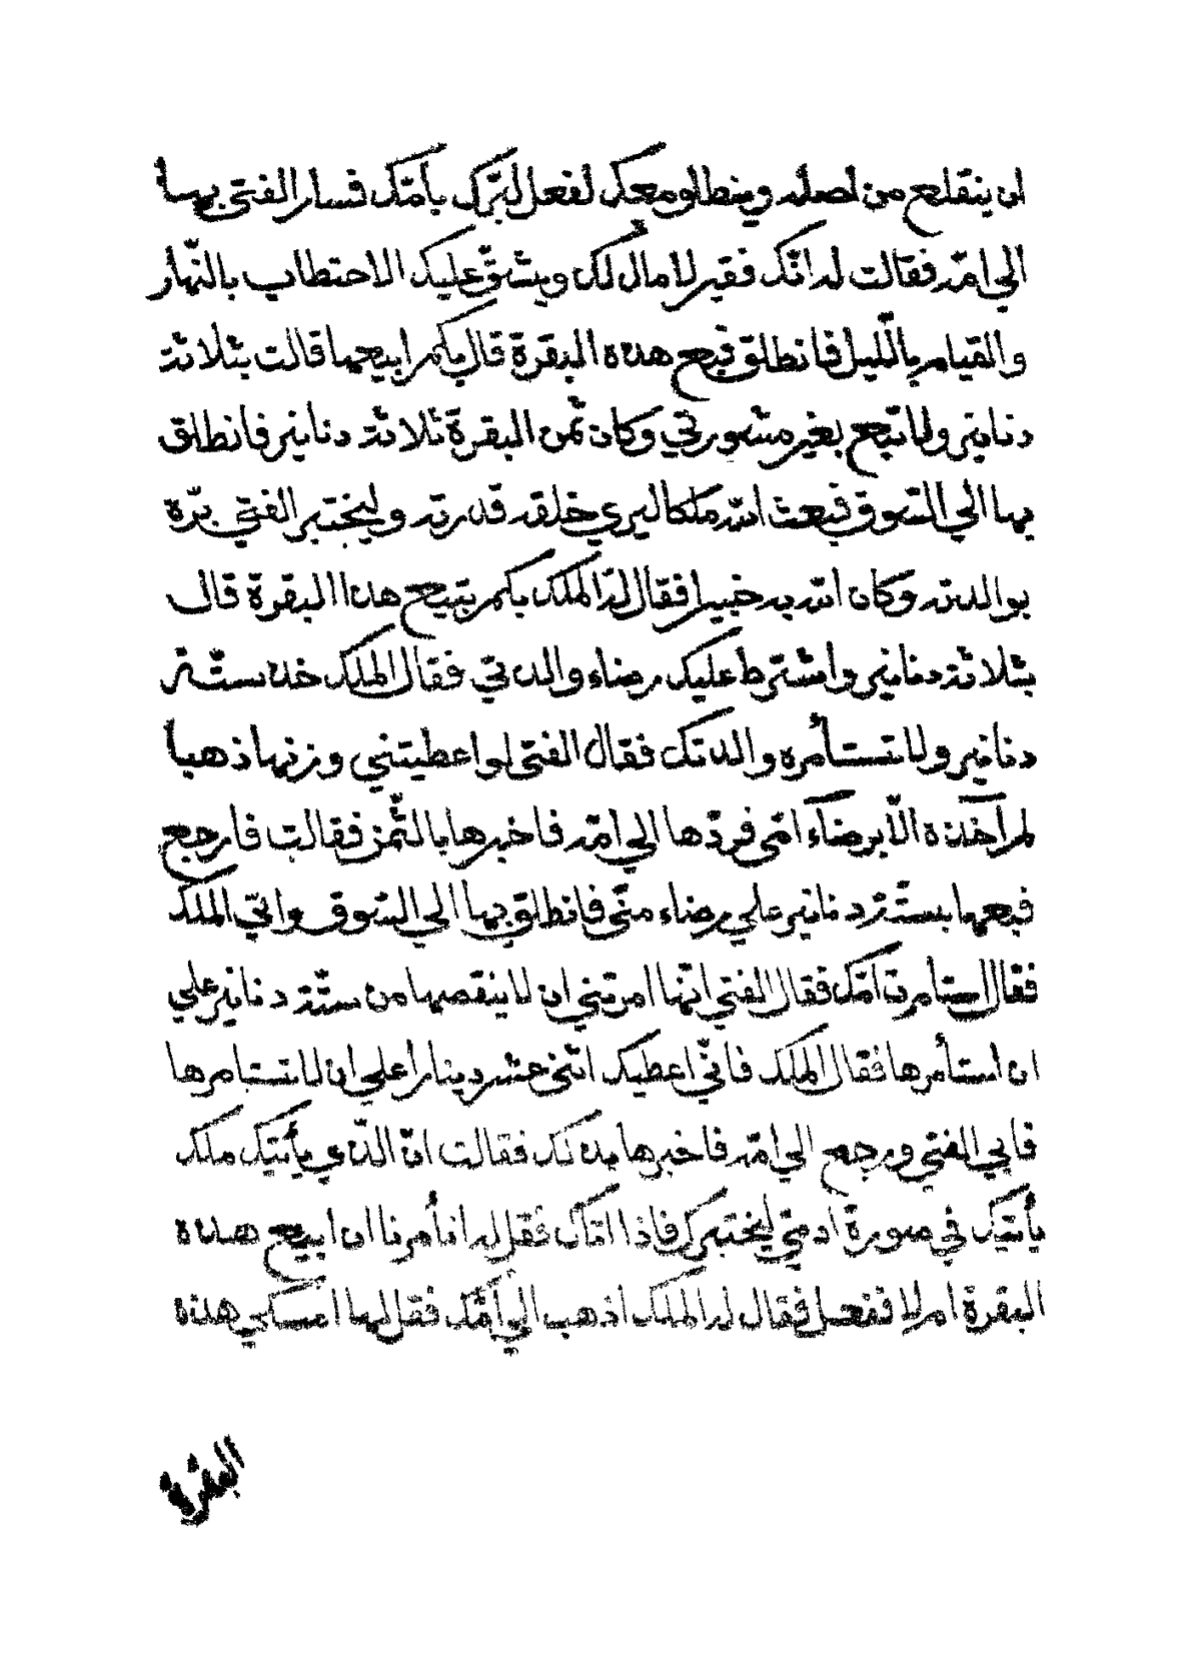 ان ينقلع من اصله وينطلو معك لفعل لبّرك بأمّتك فسار الفتى بها
الي امّه فقالت له انّك فقير لا مال لك ويشقّ عليك الاحتطاب بالنّهار
والقيام بالّليل فانطلق فبع هذه البقرة قال بكم ابيعها قالت بثلاثة
دنانير ولا تبع بغير مشورتي وكان ثمن البقرة ثلاثة دنانير فانطلق
بها الي السّوق فبعث الله ملكا ليري خلقه قدرته وليختبر الفتى برّه
بوالدته وكان الله به خبيرا فقال له الملك بكم تبيع هذا البقرة قال
بثلاثة دنانير واشترط عليك رضاء والدتي فقال الملك خذ ستّة
دنانير ولا تستأمره والدتك فقال الفتى لو اعطيتني وزنها ذهبا
لم آخذه الّا برضاء امّي فردّها الي امّه فاخبرها بالثّمن فقالت فارجع
فبعها بستّة دنانير علي رضاء منّي فانطلق بها الي السّوق واتي الملك
فقال استأمرت امّك فقال الفتى انّها امرتني ان لا ينقصها من ستّة دنانير علي
ان استأمرها فقال الملك فانّي اعطيك اثنى عشر دينارا علي ان لا تستامرها
فابي الفتي ورجع الي امّه فاخبرها بذلك فقالت انّ الّذي يأتيك ملك
يأتيك في صورة ادمي ليختبرك فاذا اتاك فقل له اتأمرنا ان ابيع هذه
البقرة ام لا ففعل فقال له الملك اذهب الي امّك فقل لها امسكي هذه
البقرة